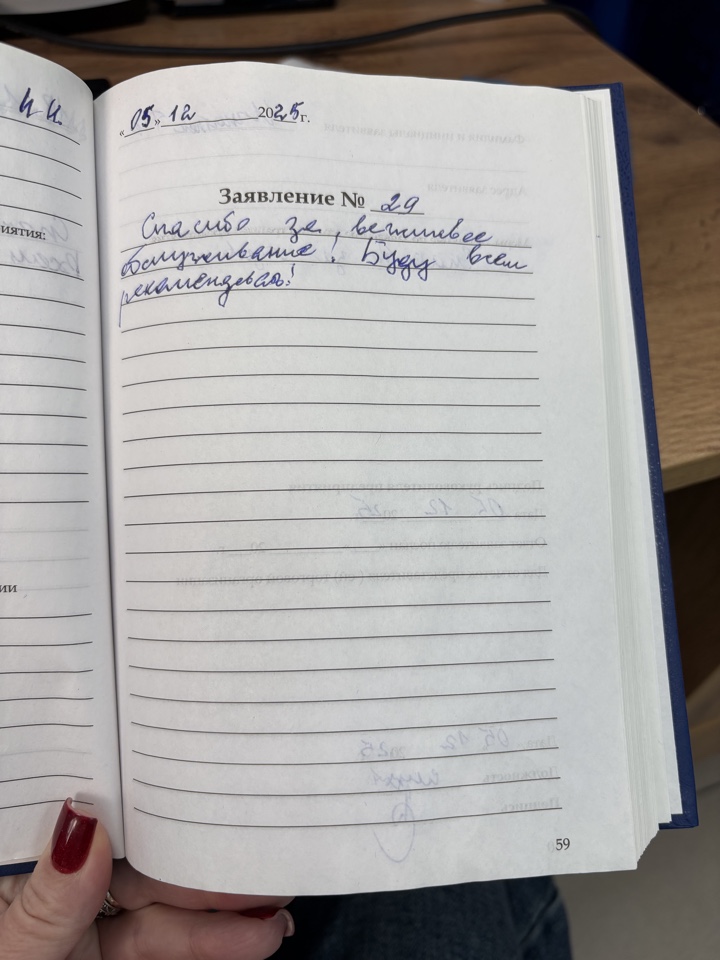 н н.
иятия:
ии
«05» 12 2025г.
Заявление № 29
Спасибо за вежливое
обслуживание! Буду всем
рекомендовать!
59